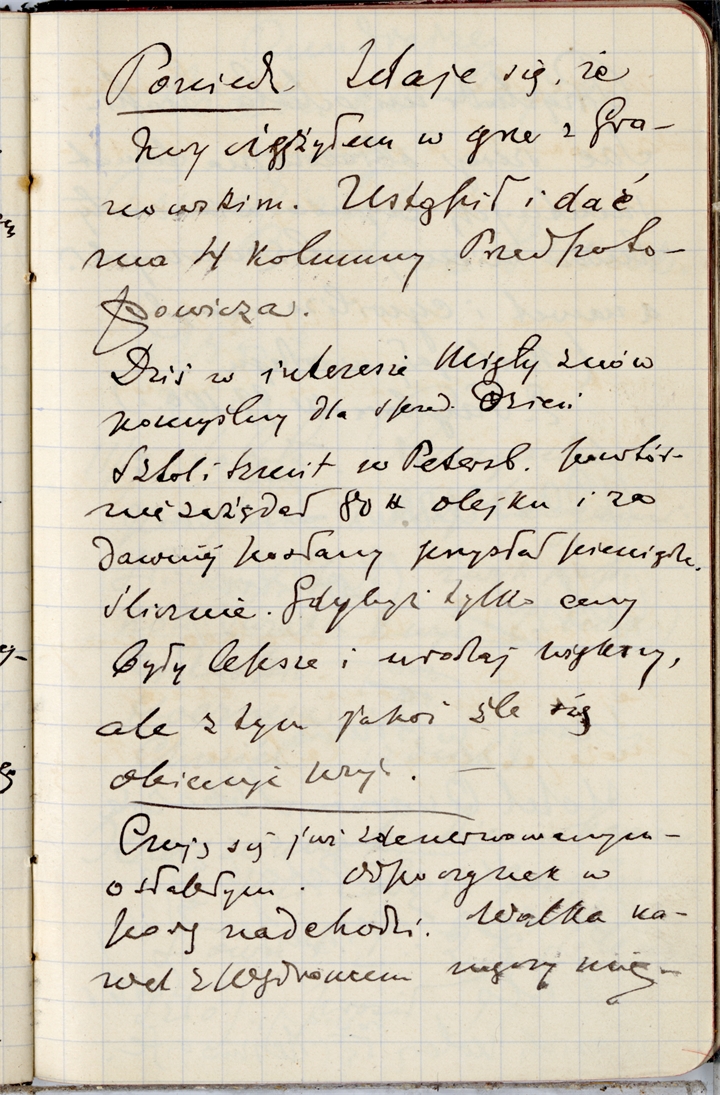 Poniedz. Zdaje się, że
zwyciężyłem w grze z Gra-
nowskim. Ustąpił i dać
ma 4 kolumny Przedpoto-
powicza.
Dziś w interesie Mięty znów
pomyślny dla sprzed. Dzień
Sztol i Szmit w Petersb. powtór-
nie zażądał 80 # olejku i za
dawniej posłany przysłał pieniądze.
Ślicznie. Gdybyż tylko ceny
były lepsze i urodzaj większy,
ale z tym jakoś źle się
Czuję się już zdenerwowanym –
osłabłym. Odpoczynek w
porę nadchodzi. Walka na-
wet z męży